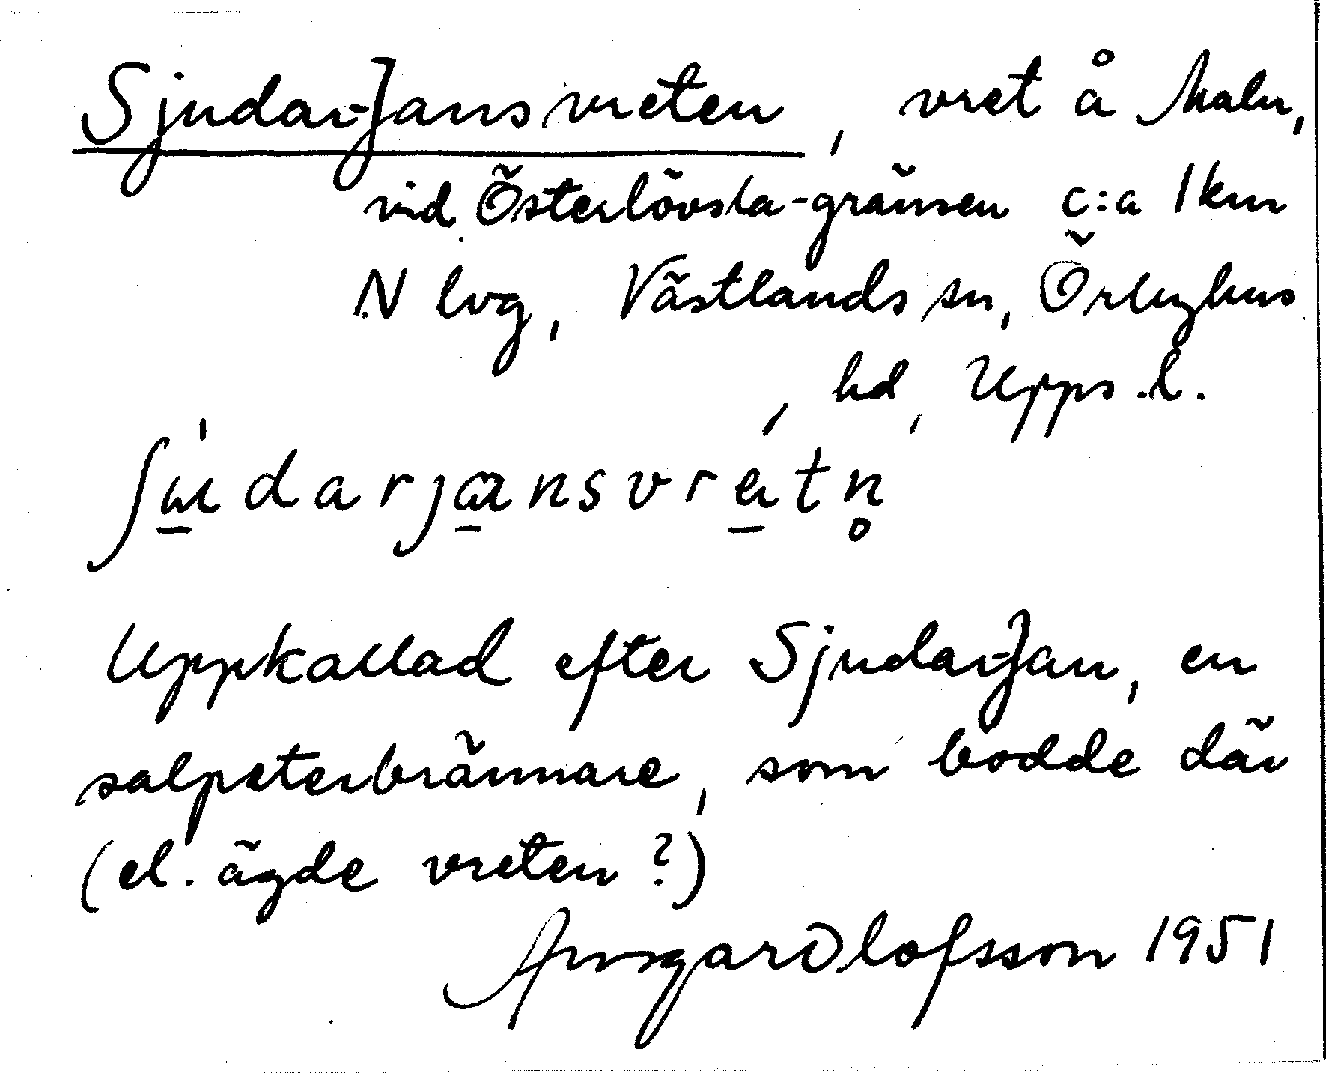 Sjudar-Jansvreten, vret å Malm,
vid Österlövsta-gränsen c:a 1 km
N lvg, Västlands sn, Örbyhus
hd, Upps. l.
ʃu̲darja̲nsvre̲tn̥
Uppkallad efter Sjudar-Jan, en
salpeterbrännare, som bodde där
(el. ägde vreten?)
Ansgar Olofsson 1951